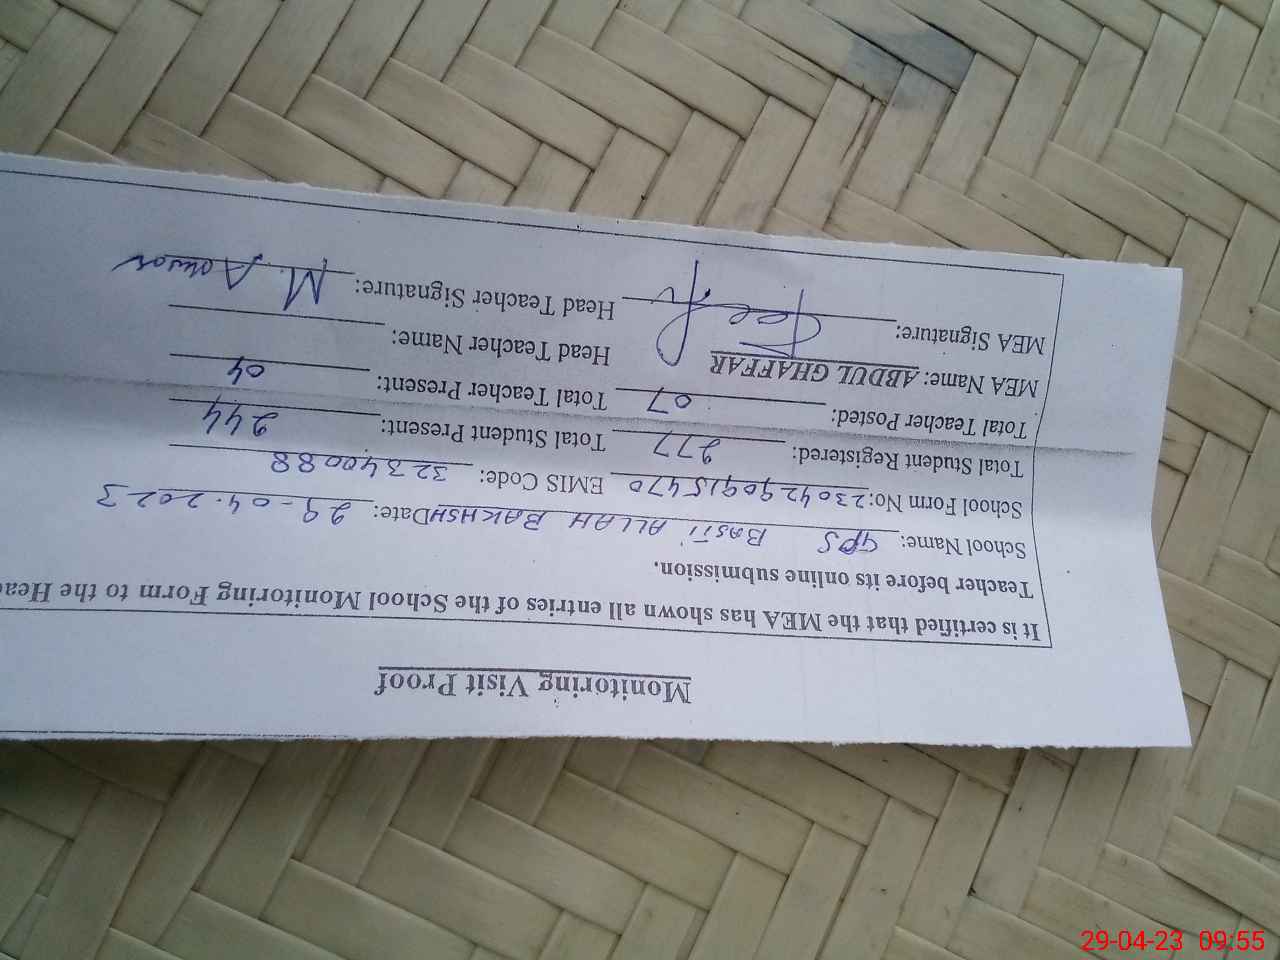 Monitoring Visit Proof
It is certified that the MEA has shown all entries of the School Monitoring Form to the Hea
Teacher before its online submission.
School Name: GPS BASTI ALLAH BAKHSH Date: 29-04-2023
School Form No: 2304290915470 EMIS Code: 32340088
Total Student Registered: 277 Total Student Present: 244
Total Teacher Posted: 07 Total Teacher Present: 04
MEA Name: ABDUL GHAFFAR Head Teacher Name:
MEA Signature: Head Teacher Signature: M. Anwar
29-04-23 09:55